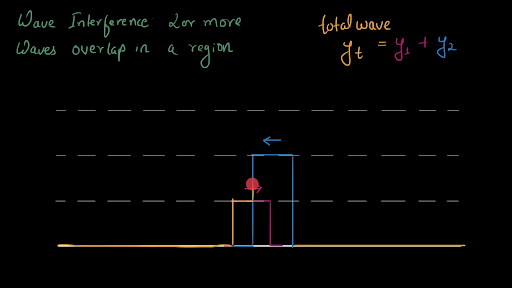 Wave Interference: 2 or more
Waves overlap in a region
total wave
yt = y1 + y2